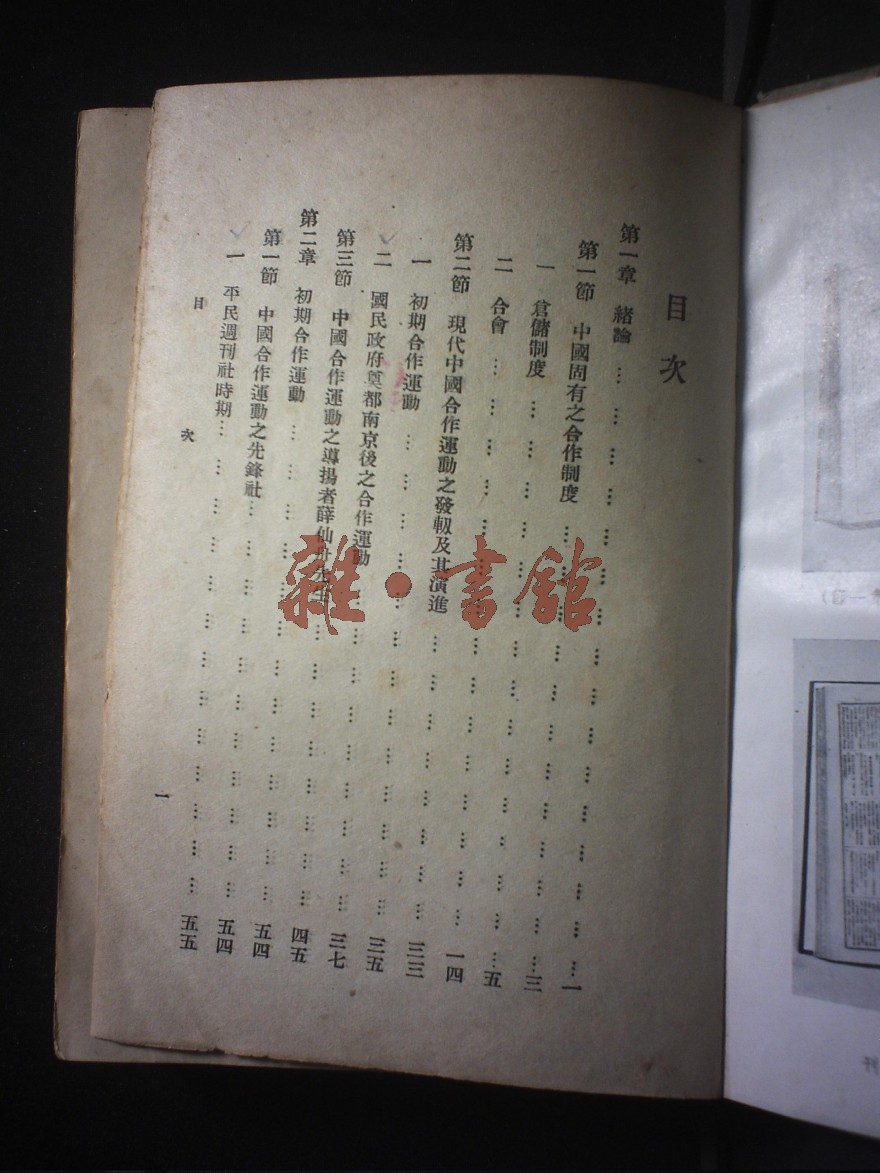 目次
第一章 緒論 … … … … … … … … … … … … 一
第一節 中國固有之合作制度 … … … … … … … … … 三
一 倉儲制度 … … … … … … … … … … … 五
二 合會 … … … … … … … … … … … … 一四
第二節 現代中國合作運動之發軔及其演進 … … … … … … … 三三
一 初期合作運動 … … … … … … … … … … … 三五
二 國民政府奠都南京後之合作運動 … … … … … … … … 三七
第三節 中國合作運動之導揚者薛仙舟先生 … … … … … … … 四五
第二章 初期合作運動 … … … … … … … … … … … 五四
第一節 中國合作運動之先鋒社 … … … … … … … … … 五四
一 平民週刊社時期 … … … … … … … … … … … 五五
目 次 一
雜·書館